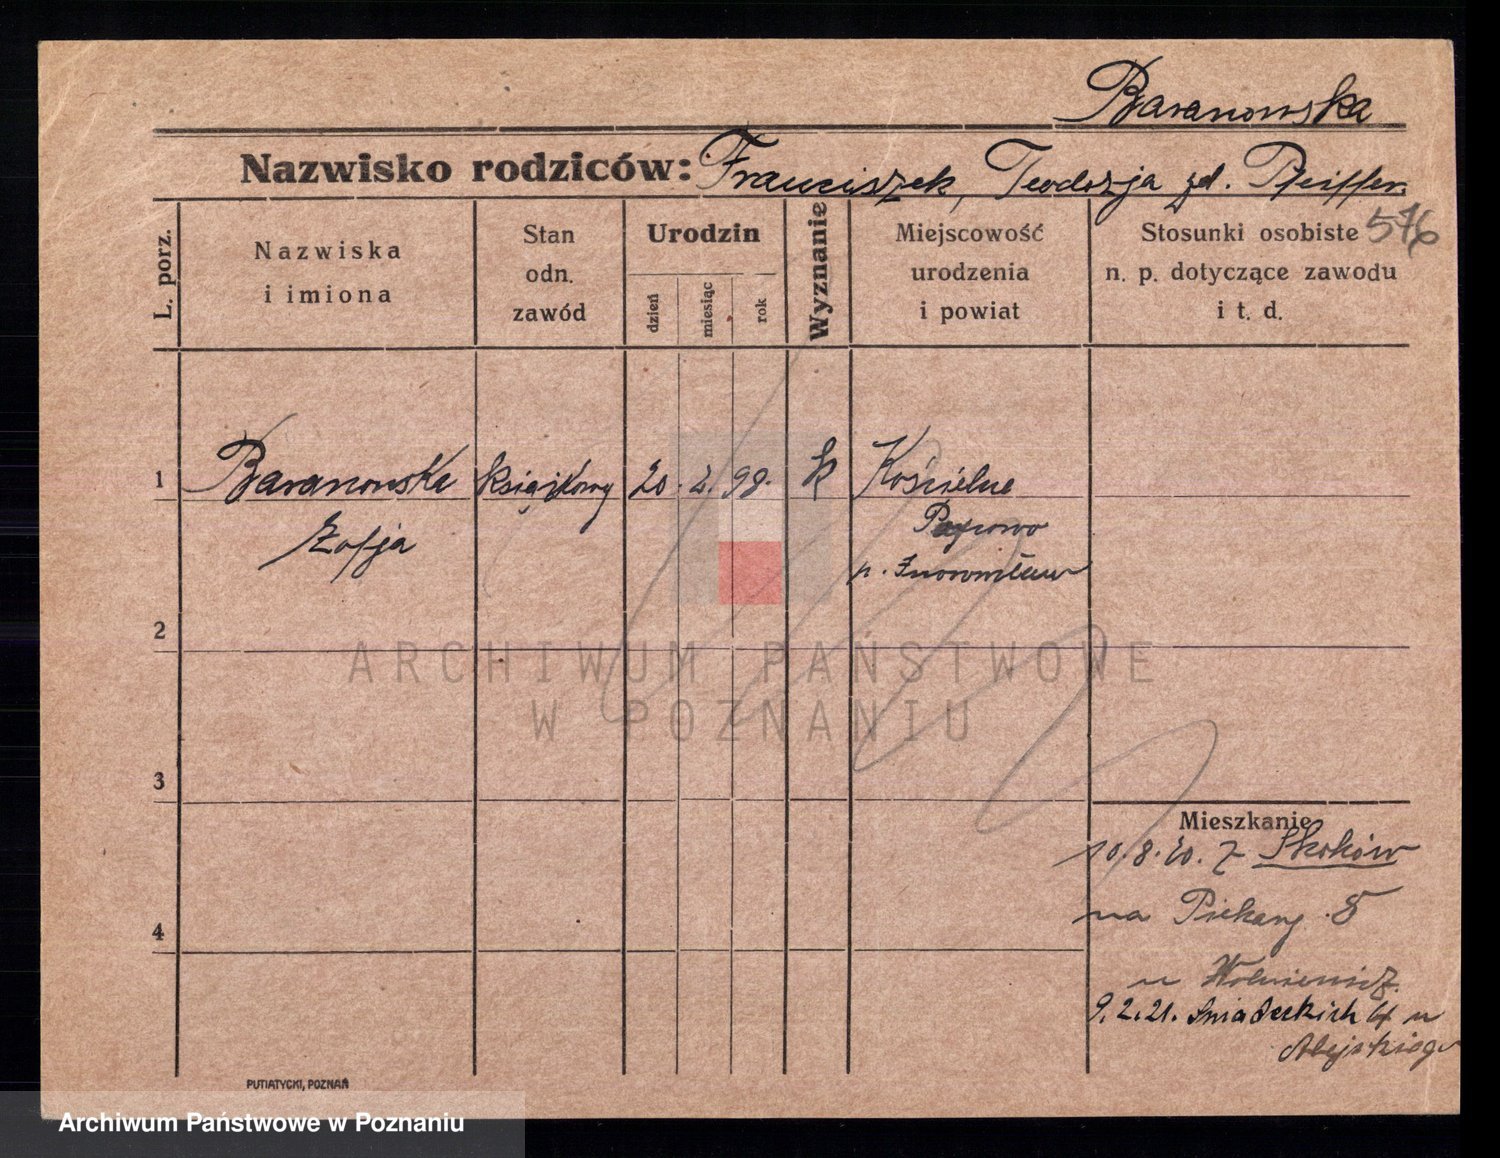 Baranowska
Nazwisko rodziców: Franciszek, Teodozja zd. Pfeiffer
576
L. porz.
Nazwiska
i imiona
Stan
odn.
zawód
Urodzin
dzień
miesiąc
rok
Wyznanie
Miejscowość
urodzenia
i powiat
Stosunki osobiste
n. p. dotyczące zawodu
i t. d.
1 Baranowska książkowy 20. 2. 98. k Kościelne
Zofja
p. Inowrocław
2
ARCHIWUM PAŃSTWOWE
W POZNANIU
3
Mieszkanie
10.8.20. z Skoków
na Piekary 5
u
4
9.2.21. Śniadeckich u
PUTIATYCKI, POZNAŃ
Archiwum Państwowe w Poznaniu